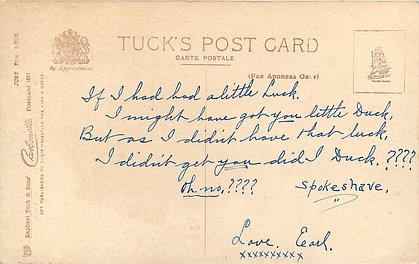 TUCK'S POST CARD
CARTE POSTALE
By Appointment
(FOR ADDRESS ONLY)
JUST FOR LUCK
Carbonette Postcard
Raphael Tuck & Sons'
ART PUBLISHERS TO
If I had had a little Luck.
I might have got you little Duck,
But as I didn't have that luck,
I didn't get you did I Duck.????
Oh, no,???? Spokeshave.
Love. Earl.
xxxxxxxxxx